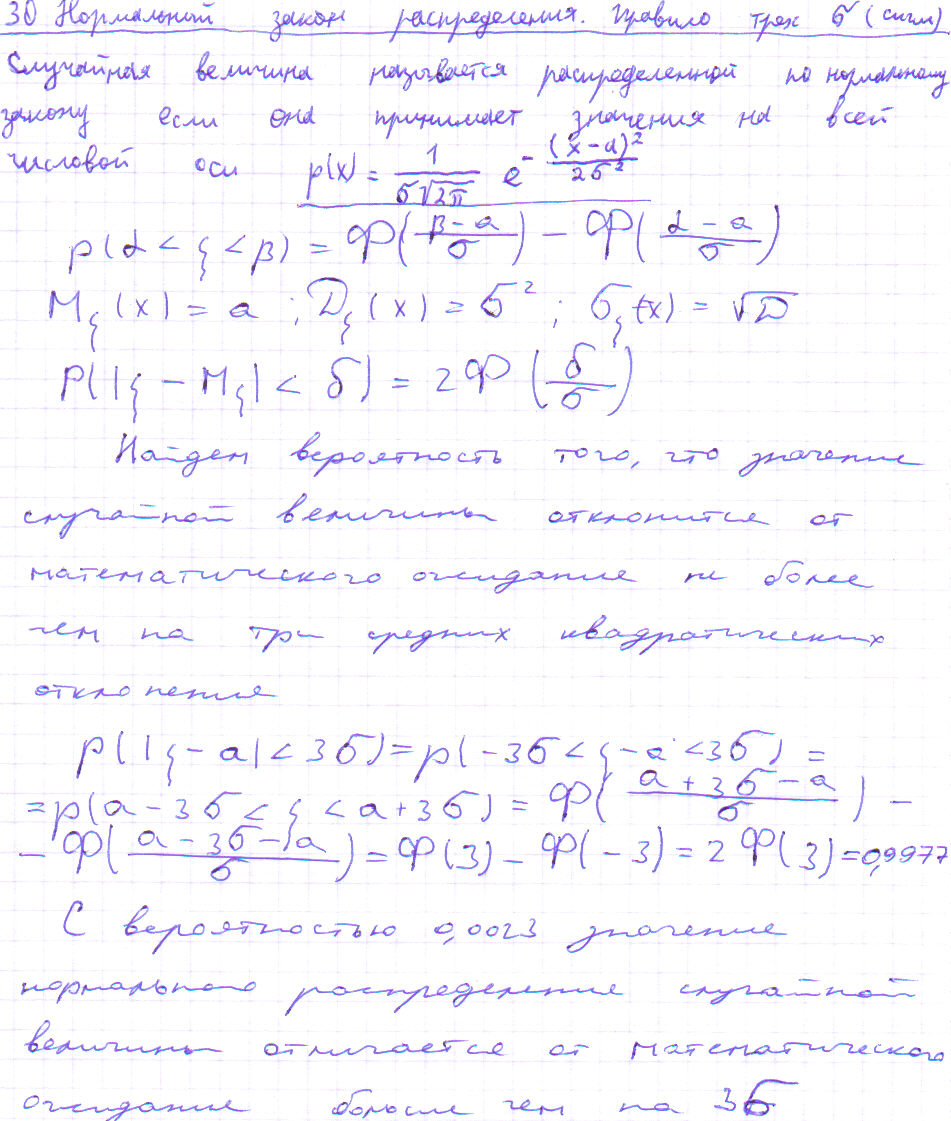 30 Нормальный закон распределения. Правило трех σ (сигм)
Случайная величина называется распределенной по нормальному
закону если она принимает значения на всей
числовой оси p(x) = 1/(σ√2π) e^(-(x-a)²/(2σ²))
p(α < ξ < β) = Φ((β-a)/σ) - Φ((α-a)/σ)
M_ξ(x) = a ; D_ξ(x) = σ² ; σ_ξ(x) = √D
P(|ξ - M_ξ| < δ) = 2Φ(δ/σ)
Найдем вероятность того, что значение
случайной величины отклонится от
математического ожидание не более
чем на три средних квадратических
отклонения
p(|ξ-a| < 3σ) = p(-3σ < ξ-a < 3σ) =
= p(a-3σ < ξ < a+3σ) = Φ((a+3σ-a)/σ) -
- Φ((a-3σ-a)/σ) = Φ(3) - Φ(-3) = 2Φ(3) = 0,9977
С вероятностью 0,0023 значение
нормального распределение случайной
величины отличается от математического
ожидание больше чем на 3σ